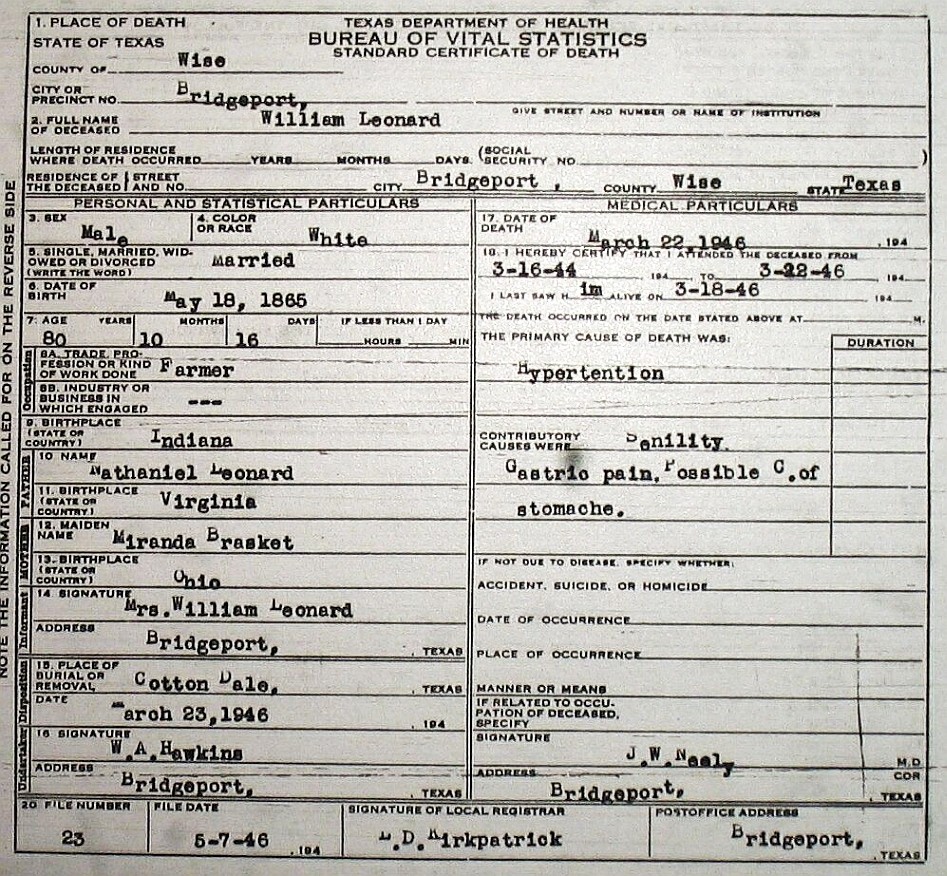 1. PLACE OF DEATH
STATE OF TEXAS
TEXAS DEPARTMENT OF HEALTH
BUREAU OF VITAL STATISTICS
STANDARD CERTIFICATE OF DEATH
COUNTY OF Wise
CITY OR PRECINCT NO. Bridgeport,
GIVE STREET AND NUMBER OR NAME OF INSTITUTION
2. FULL NAME OF DECEASED William Leonard
LENGTH OF RESIDENCE WHERE DEATH OCCURRED YEARS MONTHS DAYS. (SOCIAL SECURITY NO. )
RESIDENCE OF THE DECEASED STREET AND NO. CITY Bridgeport , COUNTY Wise STATE Texas
PERSONAL AND STATISTICAL PARTICULARS
3. SEX Male
4. COLOR OR RACE White
5. SINGLE, MARRIED, WIDOWED OR DIVORCED (WRITE THE WORD) married
6. DATE OF BIRTH May 18, 1865
7. AGE YEARS MONTHS DAYS IF LESS THAN 1 DAY
80 10 16 HOURS MIN
Occupation
8A. TRADE, PROFESSION OR KIND OF WORK DONE Farmer
8B. INDUSTRY OR BUSINESS IN WHICH ENGAGED ---
9. BIRTHPLACE (STATE OR COUNTRY) Indiana
FATHER
10 NAME Nathaniel Leonard
11. BIRTHPLACE (STATE OR COUNTRY) Virginia
MOTHER
12. MAIDEN NAME Miranda Brasket
13. BIRTHPLACE (STATE OR COUNTRY) Ohio
Informant
14. SIGNATURE Mrs.William Leonard
ADDRESS Bridgeport, , TEXAS
Disposition
15. PLACE OF BURIAL OR REMOVAL Cotton Dale, , TEXAS
DATE March 23,1946 , 194
Undertaker
16 SIGNATURE W.A.Hawkins
ADDRESS Bridgeport, , TEXAS
MEDICAL PARTICULARS
17. DATE OF DEATH March 22,1946 , 194
18. I HEREBY CERTIFY THAT I ATTENDED THE DECEASED FROM
3-16-44 194 TO 3-22-46 194
I LAST SAW H im ALIVE ON 3-18-46 194
THE DEATH OCCURRED ON THE DATE STATED ABOVE AT M.
THE PRIMARY CAUSE OF DEATH WAS: DURATION
Hypertention
CONTRIBUTORY CAUSES WERE Senility.
Gastric pain, Possible C.of
stomache.
IF NOT DUE TO DISEASE, SPECIFY WHETHER:
ACCIDENT, SUICIDE, OR HOMICIDE
DATE OF OCCURRENCE
PLACE OF OCCURRENCE
MANNER OR MEANS
IF RELATED TO OCCUPATION OF DECEASED, SPECIFY
SIGNATURE J.W.Neely M.D
COR
ADDRESS Bridgeport, , TEXAS
20 FILE NUMBER 23
FILE DATE 5-7-46 , 194
SIGNATURE OF LOCAL REGISTRAR L.D.Kirkpatrick
POSTOFFICE ADDRESS Bridgeport, , TEXAS
NOTE THE INFORMATION CALLED FOR ON THE REVERSE SIDE